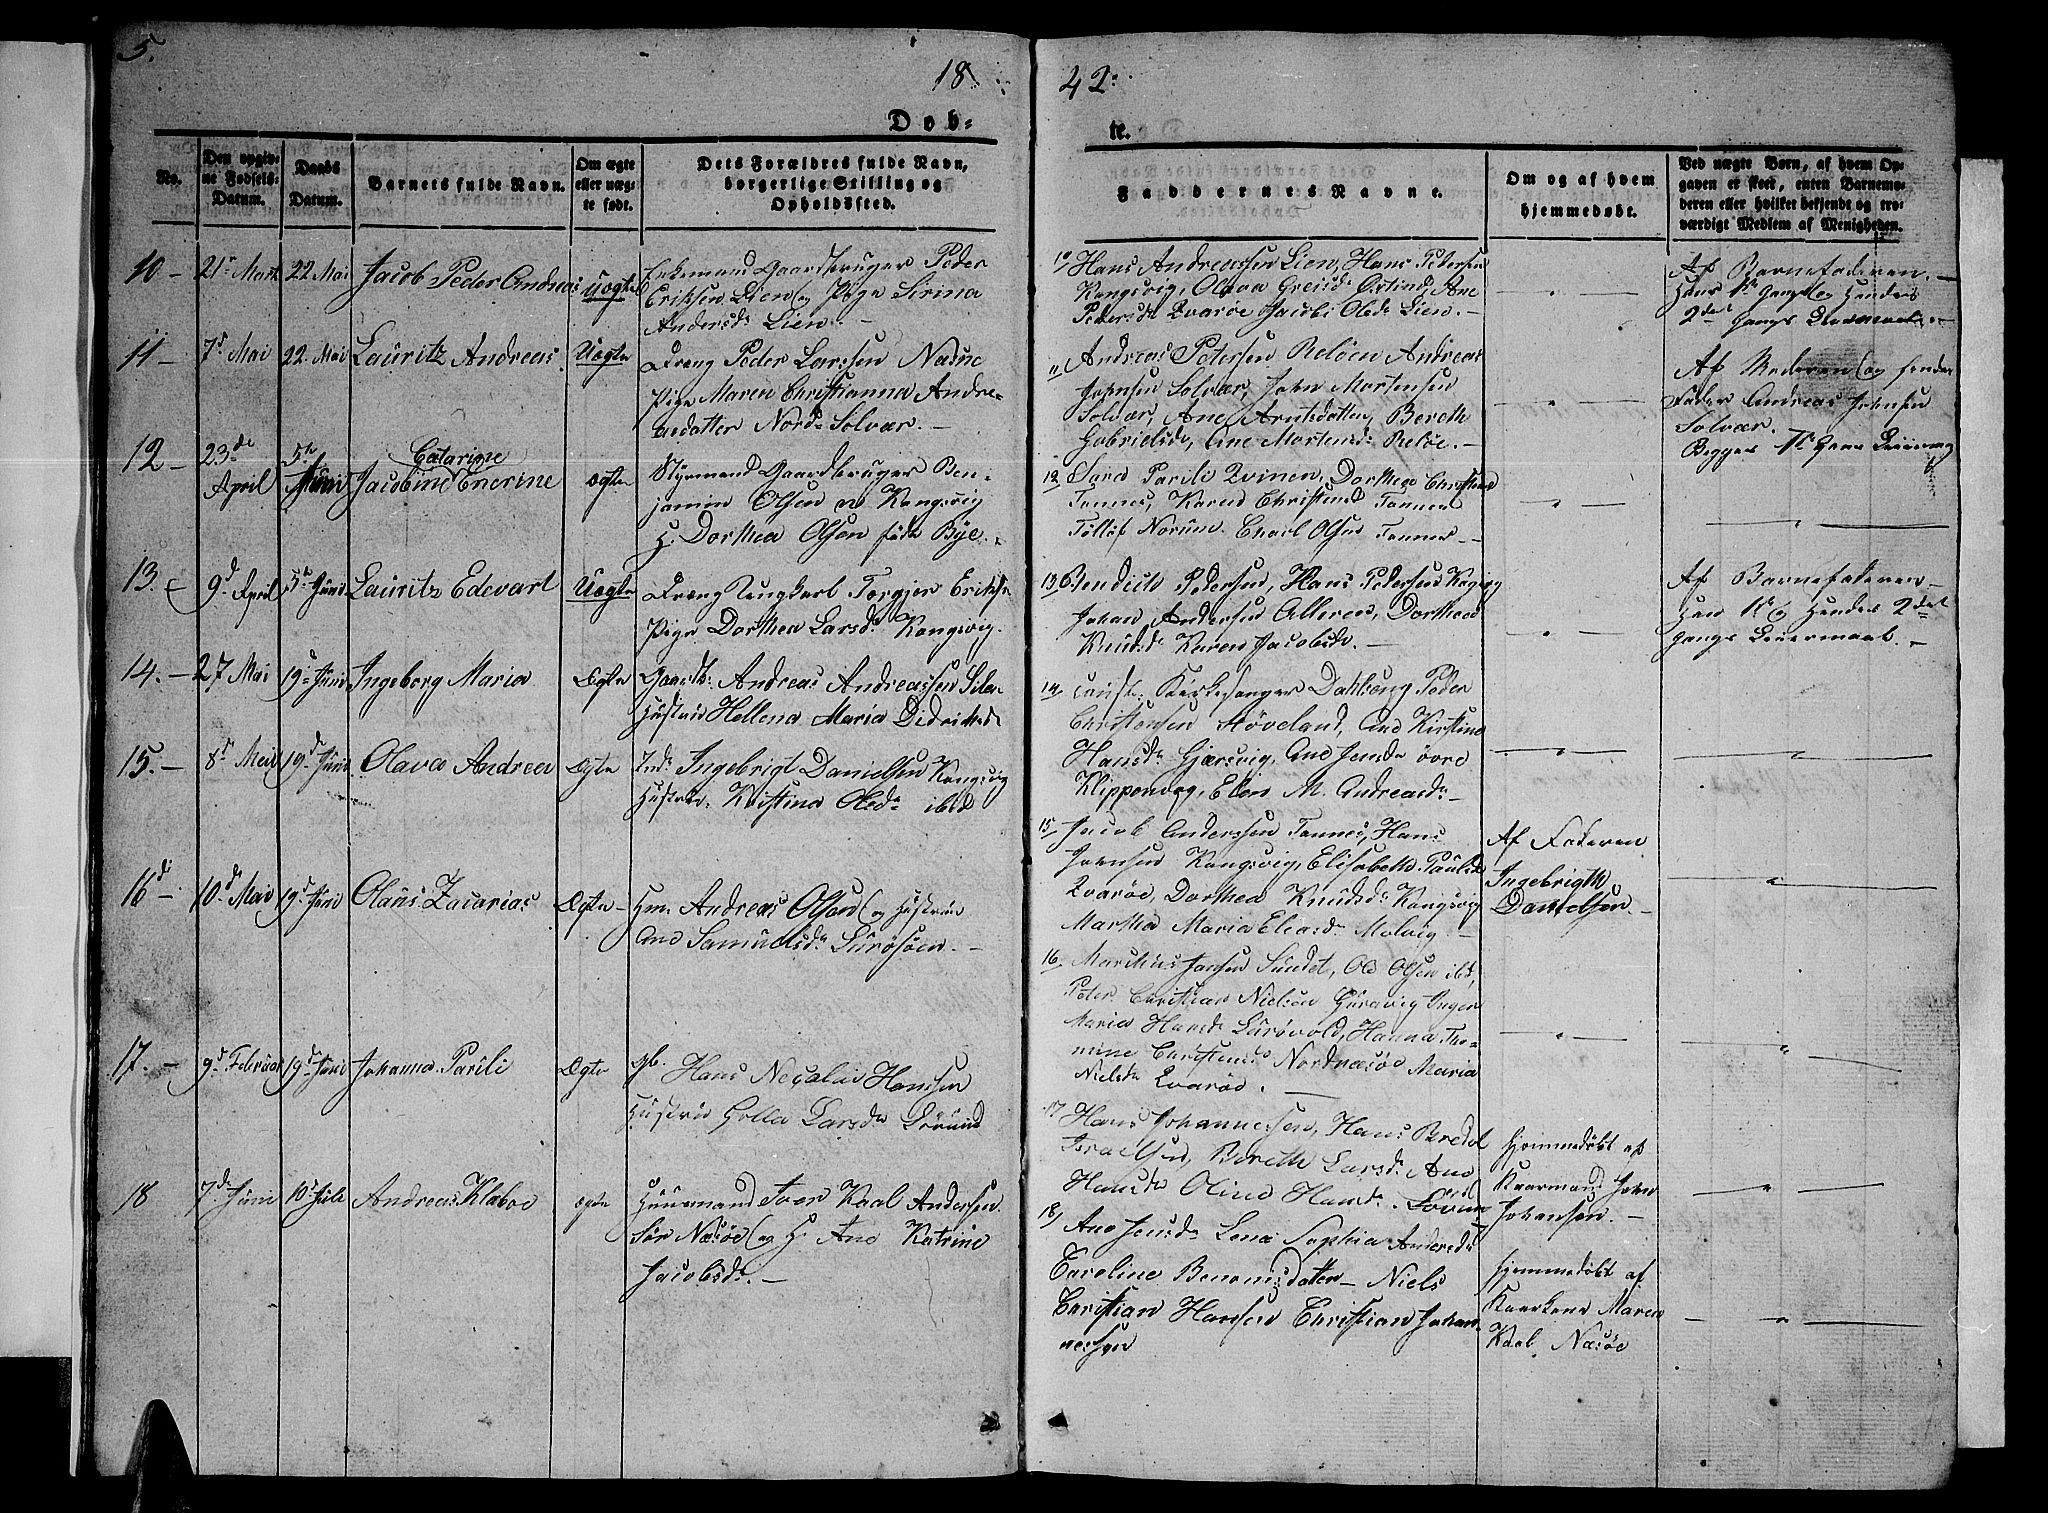 5.
18
42.
Døb-
te.
No.
Den opgiv-
ne Fødsels-
Datum.
Daabs
Datum.
Barnets fulde Navn.
Om ægte
eller uæg-
te født.
Dets Forældres fulde Navn,
borgerlige Stilling og
Opholdssted.
Faddernes Navne.
Om og af hvem
hjemmedøbt.
Ved uægte Børn, af hvem Op-
gaven er skeet, enten Barnemo-
deren eller hvilket bekjendt og tro-
værdigt Medlem af Menigheden.
10 - 21 Marts 22 Mai Jacob Peder Andreas Uægte Enkemand Gaardbruger Peder
Eriksen Lien og Pige Sirina
Andersd. Lien. -
10 Hans Andreassen Lien, Hans Pedersen
Kongsvig, Olava Greisd.
Pedersd. Qvarøe Jacobi Olsd. Lien. -
Af Barnefaderen. -
Hans 1te Gang og Hendes
2det Gangs Leiermaal. -
11 - 7d Mai 22 Mai Lauritz Andreas. Uægte Dreng Peder Larssen
Pige Maren Christianna Andre-
asdatter Nord Solvær. -
11 Andreas Petersen Reløen Andreas
Johnsen Solvær, John Mortensen
Solvær, Ane Arntsdatter, Bereth
Gabrielsd., Ane Mortensd. Reløe. -
Af Moderen og hendes
Fader Andreas Johnsen
Solvær.
Begges 1te Gang
12 - 23de
April 5te
Juni Catarine
Jacobine Enerine ægte Styrmand Gaardbruger Ben-
jamin Olsen Kongsvig
H. Dorthea Olsen født Bye. -
12 Parili Dorthea
Tonnes, Karen Tonnes
Norum. Olsen Tonnes -
13. - 9d April 5te Juni Lauritz Edevart Uægte Dreng Ungkarl Torgjer Eriks.
Pige Dorthea Larsd. Kongsvig.
13 Bendict Pedersen, Hans Pedersen
Johan Andersen Dorthea
Knudsd. Karen Jacobsd. -
Af Barnefaderen -
Han 1te og Hendes 2det
Gangs Leiermaal. -
14. - 27 Mai 19d Juni Ingeborg Maria Ægte Gaardb. Andreas Andreassen
Hustrue Hellena Maria Didriksd.
14 Kirkesanger Dahlberg Peder
Christensen Høveland, Ane Kirstine
Hansd. Gjærsvig, Ane Jensd. øvre
Klippenvog, Elen M. Andreasd. -
15. - 8d Mai 19d Juni Olava Andrea Ægte Ind. Ingebrigt Danielsen Kongsvig
Hustrue Kristina Olsd. ibid
15 Jacob Anderssen Tonnes, Hans
Johnsen Kongsvig, Elisabeth Paulsd.
Qvarøe, Dorthea Knudsd. Kongsvig
Martha Maria Eliasd. Molvig -
Af Faderen
Ingebrigth
Danielsen. -
16 10d Mai 19d Juni Olaus Zacarias Ægte - Hm. Andreas Olsen og Hustrue
Ane Samuelsd. -
16. Marchus Jansen Sundet, Ole Olsen ibd,
Peter Christian Nielsen Inger
Maria Hansd. Hanna Tho-
mine Christensd. Nordnæsøe Maria
Nielsd. Qvarøe.
17. - 9d Februar 19d Juni Johanna Parili Ægte Gb. Hans Hanssen
Hustrue Larsd.
17 Hans Johannessen, Hans
Israelsen, Bereth Larsd. Ane
Hansd. Oline Hansd.
hjemmedøbt af
John
Johansen. -
18 7de Juni 10d Juli Andreas Klæboe ægte Huusmand Iver Kaal Andersen
Sør Næsøe og H. Ane Katrine
Jacobsd. -
18 Ane Jensd. Lena Sophia Andersd.
Caroline Benonisdatter - Niels
Christian Hansen Christian Johan-
nessen
hjemmedøbt af
Maren
Kaal Næsøe